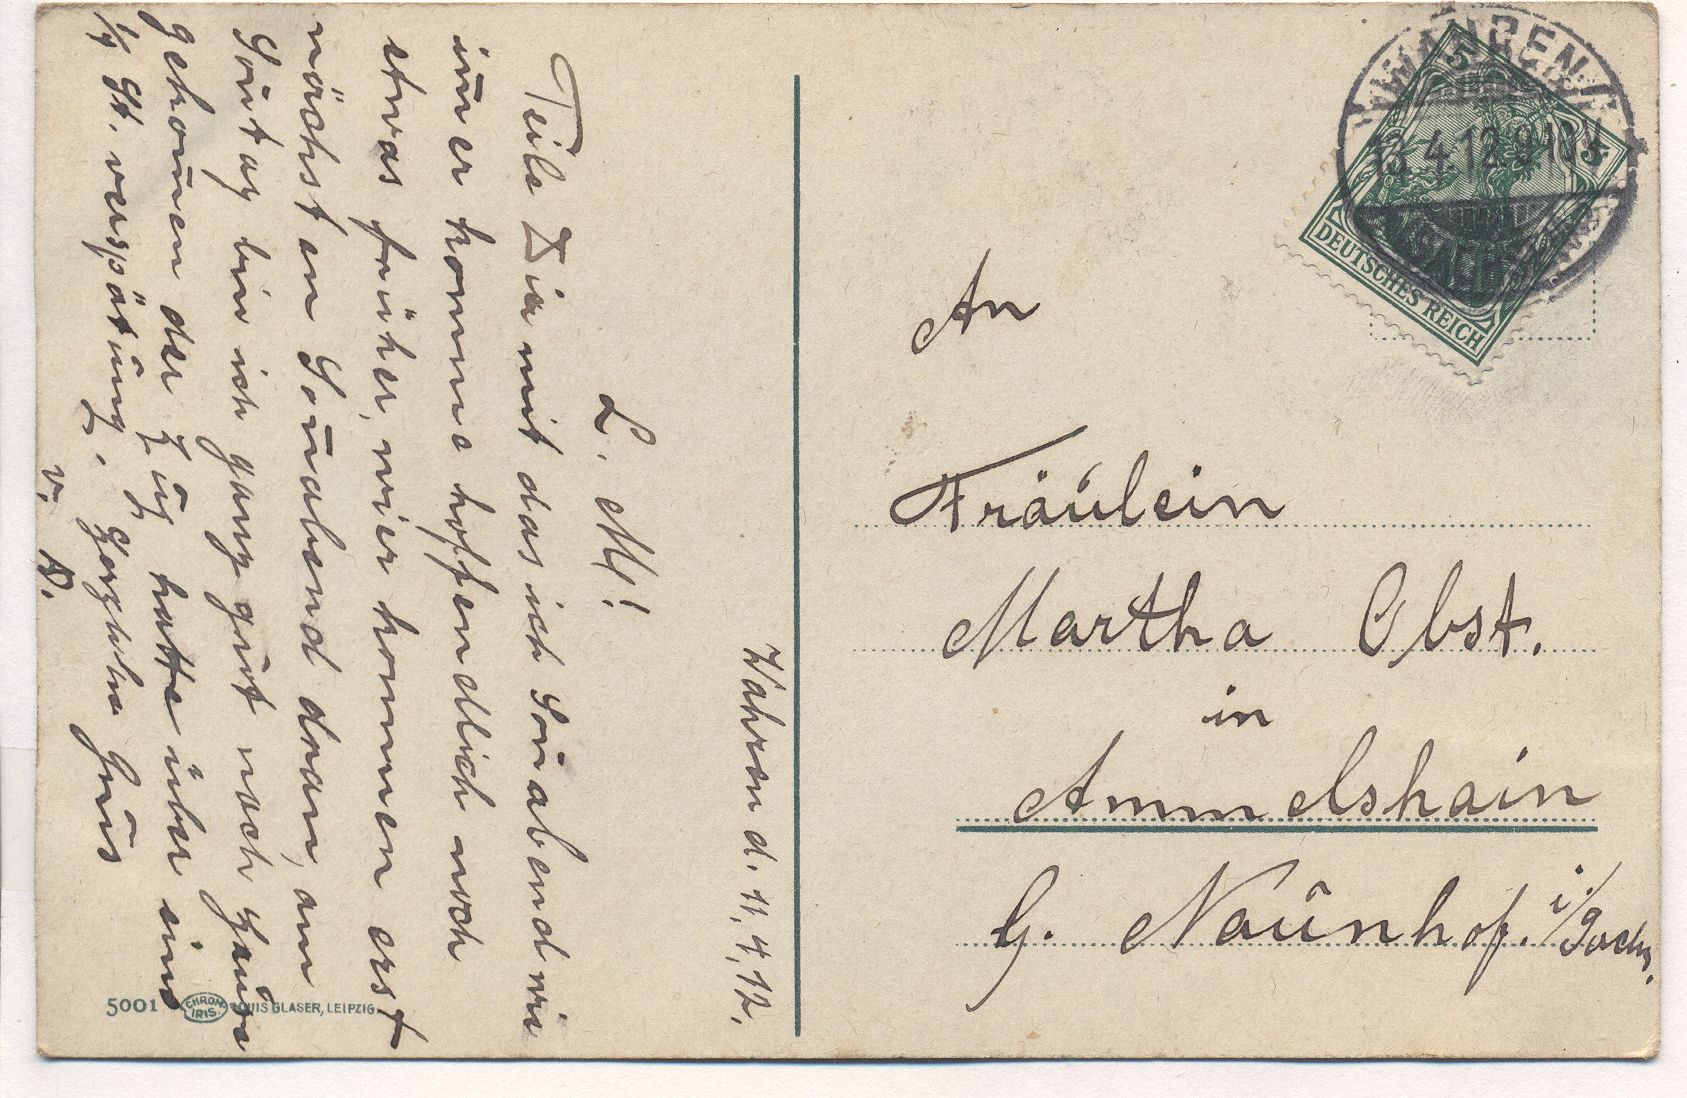 Wahren d. 11.4.12.
L. M!
Teile Dir mit das ich Soṅabend wie
im̄er komme hoffendlich noch
etwas früher, wier kommen erst
nächsten Soṅabend dran, am
Soṅtag bin ich ganz gut nach Hause
gekom̄en der Zug hatte über eine
1/4 St. verspätung. Herzliche Grüs
v. D.
5001 CHROM IRIS. LOUIS GLASER, LEIPZIG.
WAHREN
13.4.12.9-10V.
(SACHSEN)
5 5
DEUTSCHES REICH
An
Fräulein
Martha Obst.
in
Ammelshain
G. Naunhof. i/Sachs.